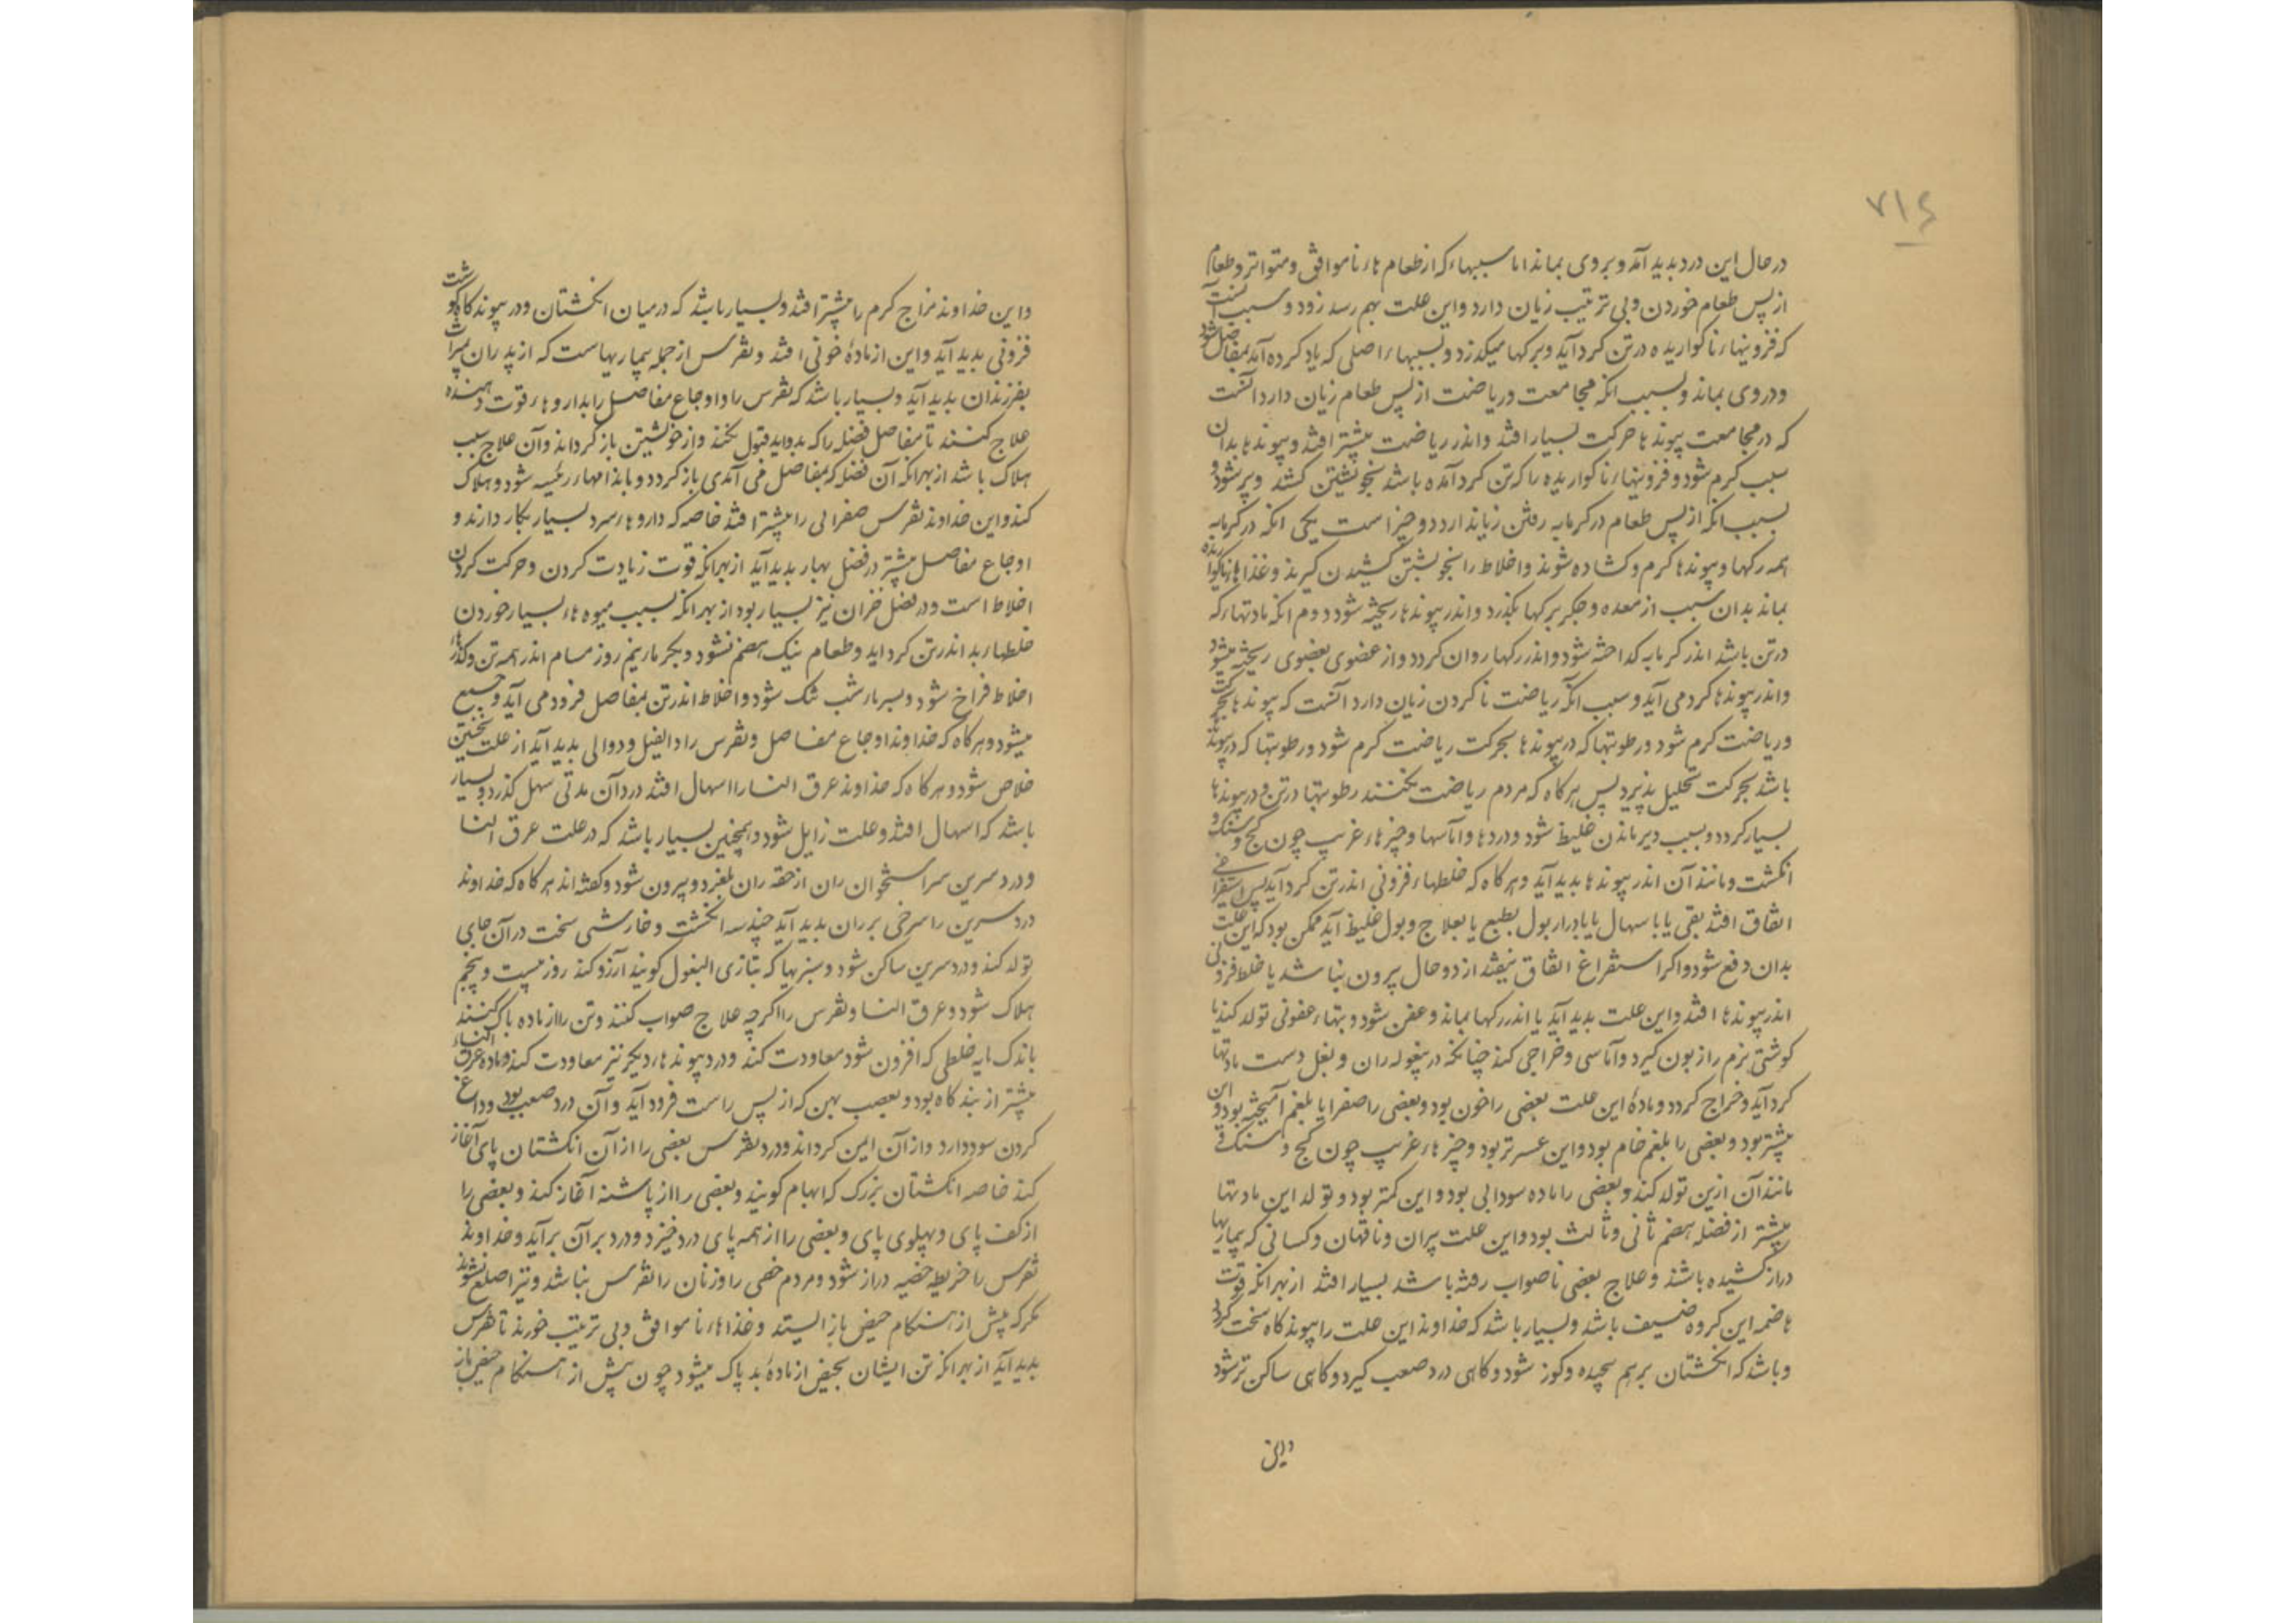 ۷۱۶
در حال این درد بدید آمد و بر وی بماند اما سببهاء که از طعام هاء ناموافق و متواتر و طعام
از پس طعام خوردن و بی ترتیب زیان دارد و این علت بهم رسد زود و سبب آنست
که فزونیهاء ناکواریده در تن کرد آید و برکها میکذرد و بسببهاء اصلی که یاد کرده آید بمفاصل شود
و در وی بماند و بسبب انکه مجامعت و ریاضت از پس طعام زیان دارد آنست
که در مجامعت پیوندها حرکت بسیار افتد و اندر ریاضت بیشتر افتد و پیوندها بدان
سبب کرم شود و فزونیهاء ناکواریده را که تن کرد آمده باشد بخویشتن کشد و پر شود و
بسبب انکه از پس طعام در کرمابه رفتن زیاندارد دو چیز است یکی انکه در کرمابه
همه رکها و پیوندها کرم و کشاده شوند و اخلاط را بخویشتن کشیدن کیرند و غذاهاء ناکواریده
بماند بدان سبب از معده و جکر برکها بکذرد و اندر پیوندها ریخته شود دوم انکه مادتهاء که
در تن باشد اندر کرمابه کداخته شود و اندر رکها روان کردد و از عضوی بعضوی ریخته میشود
و اندر پیوندها کرد می آید و سبب انکه ریاضت ناکردن زیان دارد آنست که پیوندها بحرکت
و ریاضت کرم شود و رطوبتها که در پیوندها بحرکت ریاضت کرم شود و رطوبتها که در پیوندها
باشد بحرکت تحلیل پذیرد پس هر کاه که مردم ریاضت نکنند رطوبتها در تن و در پیوندها
بسیار کردد و بسبب دیر ماندن غلیظ شود و دردها و آماسها و چیزهاء غریب چون کچ و سنک و
انکشت و مانند آن اندر پیوندها بدید آید و هر کاه که خلطهاء فزونی اندر تن کرد آید پس استفراغی
اتفاق افتد بقی یا باسهال یا بادرار بول بطبع یا بعلاج و بول غلیظ آید ممکن بود که این علت
بدان دفع شود و اکر استفراغ اتفاق نیفتد از دو حال بیرون نباشد یا خلط فزونی
اندر پیوندها افتد و این علت بدید آید یا اندر رکها بماند و عفن شود و تبهاء عفونی تولد کند یا
کوشتی نرم را زبون کیرد و آماسی و خراجی کند چنانکه در پیغوله ران و بغل دست مادتها
کرد آید و خراج کردد و مادۀ این علت بعضی را خون بود و بعضی را صفرا یا بلغم آمیخته بود و این
بیشتر بود و بعضی را بلغم خام بود و این عسرتر بود و چیزهاء غریب چون کچ و سنک و
مانند آن ازین تولد کند و بعضی را ماده سودائی بود و این کمتر بود و تولد این مادتها
بیشتر از فضله هضم ثانی و ثالث بود و این علت پیران و ناقهان و کسانی که بیماریها
دراز کشیده باشند و علاج بعضی ناصواب رفته باشد بسیار افتد از بهر انکه قوت
هاضمه این کروه ضعیف باشد و بسیار باشد که خداوند این علت را پیوندکاه سخت کردد
و باشد که انکشتان بر هم پیچیده و کوز شود و کاهی درد صعب کیرد و کاهی ساکن تر شود
و این
و این خداوند مزاج کرم را بیشتر افتد و بسیار باشد که در میان انکشتان و در پیوندکاه کوشت
فزونی بدید آید و این از مادۀ خونی افتد و نقرس از جمله بیماریهاست که از پدران بمیراث
بفرزندان بدید آید و بسیار باشد که نقرس را و اوجاع مفاصل را بداروهاء قوت دهنده
علاج کنند تا مفاصل فضله را که بدو آید قبول نکند و از خویشتن باز کرداند و آن علاج سبب
هلاک باشد از بهر انکه آن فضله که بمفاصل می آمدی باز کردد و باندامهاء رئیسه شود و هلاک
کند و این خداوند نقرس صفرائی را بیشتر افتد خاصه که داروهاء سرد بسیار بکار دارند و
اوجاع مفاصل بیشتر در فصل بهار بدید آید از بهر انکه قوت زیادت کردن و حرکت کردن
اخلاط است و در فصل خزان نیز بسیار بود از بهر انکه بسبب میوه هاء بسیار خوردن
خلطهاء بد اندر تن کرد اید و طعام نیک هضم نشود و بکرماء نیم روز مسام اندر همه تن و کذرهاء
اخلاط فراخ شود و بسرماء شب تنک شود و اخلاط اندر تن بمفاصل فرود می آید و جمع
میشود و هر کاه که خداوند اوجاع مفاصل و نقرس را داء الفیل و دوالی بدید آید از علت نخستین
خلاص شود و هر کاه که خداوند عرق النسا را اسهال افتد درد آن مدتی سهل کذرد و بسیار
باشد که اسهال افتد و علت زایل شود و همچنین بسیار باشد که در علت عرق النسا
و درد سرین سر استخوان ران از حقه ران بلغزد و بیرون شود و کفته اند هر کاه که خداوند
درد سرین را سرخی بر ران بدید آید چند سه انکشت و خارشی سخت در آن جای
تولد کند و درد سرین ساکن شود و سبزیها که بتازی البقول کویند آرزو کند روز بیست و پنجم
هلاک شود و عرق النسا و نقرس را اکرچه علاج صواب کنند و تن را از ماده پاک کنند
باندک مایه خلطی که افزون شود معاودت کند و درد پیوندهاء دیکر نیز معاودت کند و ماده عرق النساء
بیشتر از بندکاه بود و بعصب پهن که از پس راست فرود آید و آن درد صعب بود و داغ
کردن سود دارد و از آن ایمن کرداند و درد نقرس بعضی را از آن انکشتان پای آغاز
کند خاصه انکشتان بزرک که ابهام کویند و بعضی را از پاشنه آغاز کند و بعضی را
از کف پای و پهلوی پای و بعضی را از همه پای درد خیزد و درد بر آن بر آید و خداوند
نقرس را خریطه خصیه دراز شود و مردم خصی را و زنان را نقرس نباشد و نیز اصلع نشوند
مکر که پیش از هنکام حیض باز ایستد و غذاهاء ناموافق و بی ترتیب خورند تا نقرس
بدید آید از بهر انکه تن ایشان بحیض از مادۀ بد پاک میشود چون پیش از هنکام حیض باز